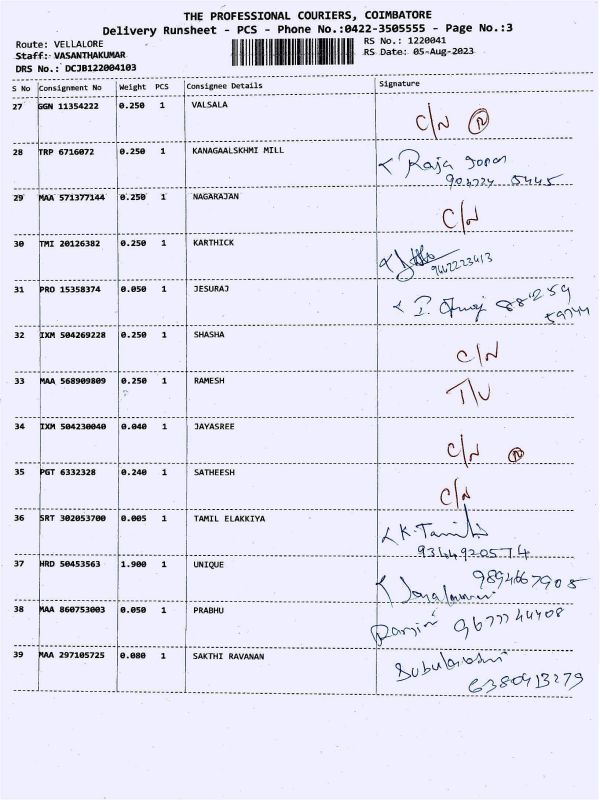 THE PROFESSIONAL COURIERS, COIMBATORE
Delivery Runsheet - PCS - Phone No.:0422-3505555 - Page No.:3
Route: VELLALORE
RS No.: 1220041
Staff: VASANTHAKUMAR
RS Date: 05-Aug-2023
DRS No.: DCJB122004103
S No Consignment No Weight PCS Consignee Details Signature
27 GGN 11354222 0.250 1 VALSALA C/N R
28 TRP 6716072 0.250 1 KANAGAALSKHMI MILL Raja
29 MAA 571377144 0.250 1 NAGARAJAN C/N
30 TMI 20126382 0.250 1 KARTHICK
9442223413
31 PRO 15358374 0.050 1 JESURAJ 88259
59744
32 IXM 504269228 0.250 1 SHASHA C/N
33 MAA 568909809 0.250 1 RAMESH
34 IXM 504230040 0.040 1 JAYASREE C/N R
35 PGT 6332328 0.240 1 SATHEESH C/N
36 SRT 302053700 0.005 1 TAMIL ELAKKIYA K.Tamil
9344920574
37 HRD 50453563 1.900 1 UNIQUE 9894667905
38 MAA 860753003 0.050 1 PRABHU Ranjini 9677744408
39 MAA 297105725 0.080 1 SAKTHI RAVANAN Subulakshmi
6380913279